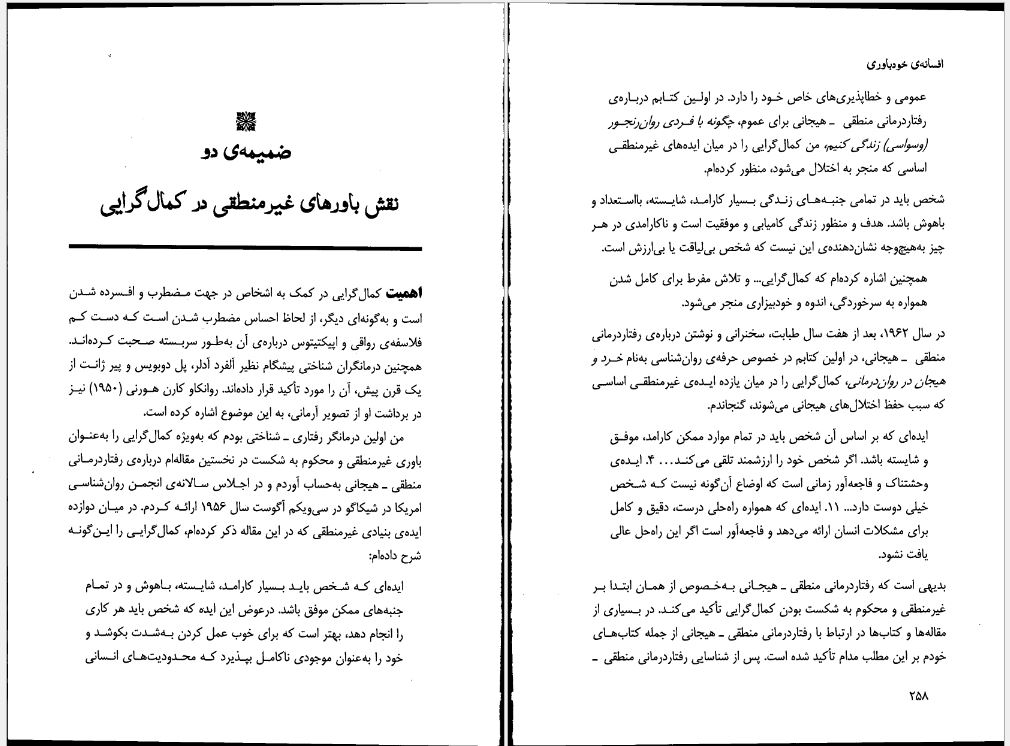 ضمیمه‌ی دو
نقش باورهای غیرمنطقی در کمال‌گرایی
اهمیت کمال‌گرایی در کمک به اشخاص در جهت مضطرب و افسرده شدن
است و به‌گونه‌ای دیگر، از لحاظ احساس مضطرب شدن است که دست کم
فلاسفه‌ی رواقی و اپیکتیتوس درباره‌ی آن به‌طور سربسته صحبت کرده‌اند.
همچنین درمانگران شناختی پیشگام نظیر آلفرد آدلر، پل دوبویس و پیر ژانت از
یک قرن پیش، آن را مورد تأکید قرار داده‌اند. روانکاو کارن هورنی (۱۹۵۰) نیز
در برداشت او از تصویر آرمانی، به این موضوع اشاره کرده است.
من اولین درمانگر رفتاری ـ شناختی بودم که به‌ویژه کمال‌گرایی را به‌عنوان
باوری غیرمنطقی و محکوم به شکست در نخستین مقاله‌ام درباره‌ی رفتاردرمانی
منطقی ـ هیجانی به‌حساب آوردم و در اجلاس سالانه‌ی انجمن روان‌شناسی
امریکا در شیکاگو در سی‌ویکم آگوست سال ۱۹۵۶ ارائه کردم. در میان دوازده
ایده‌ی بنیادی غیرمنطقی که در این مقاله ذکر کرده‌ام، کمال‌گرایی را این‌گونه
شرح داده‌ام:
ایده‌ای که شخص باید بسیار کارامد، شایسته، باهوش و در تمام
جنبه‌های ممکن موفق باشد. درعوض این ایده که شخص باید هر کاری
را انجام دهد، بهتر است که برای خوب عمل کردن به‌شدت بکوشد و
خود را به‌عنوان موجودی ناکامل بپذیرد که محدودیت‌های انسانی
افسانه‌ی خودباوری
عمومی و خطاپذیری‌های خاص خود را دارد. در اولین کتابم درباره‌ی
رفتاردرمانی منطقی ـ هیجانی برای عموم، چگونه با فردی روان‌رنجور
(وسواسی) زندگی کنیم، من کمال‌گرایی را در میان ایده‌های غیرمنطقی
اساسی که منجر به اختلال می‌شود، منظور کرده‌ام.
شخص باید در تمامی جنبه‌های زندگی بسیار کارامد، شایسته، بااستعداد و
باهوش باشد. هدف و منظور زندگی کامیابی و موفقیت است و ناکارامدی در هر
چیز به‌هیچ‌وجه نشان‌دهنده‌ی این نیست که شخص بی‌لیاقت یا بی‌ارزش است.
همچنین اشاره کرده‌ام که کمال‌گرایی... و تلاش مفرط برای کامل شدن
همواره به سرخوردگی، اندوه و خودبیزاری منجر می‌شود.
در سال ۱۹۶۲، بعد از هفت سال طبابت، سخنرانی و نوشتن درباره‌ی رفتاردرمانی
منطقی ـ هیجانی، در اولین کتابم در خصوص حرفه‌ی روان‌شناسی به‌نام خرد و
هیجان در روان‌درمانی، کمال‌گرایی را در میان یازده ایده‌ی غیرمنطقی اساسی
که سبب حفظ اختلال‌های هیجانی می‌شوند، گنجاندم.
ایده‌ای که بر اساس آن شخص باید در تمام موارد ممکن کارامد، موفق
و شایسته باشد. اگر شخص خود را ارزشمند تلقی می‌کند... ۴. ایده‌ی
وحشتناک و فاجعه‌آور زمانی است که اوضاع آن‌گونه نیست که شخص
خیلی دوست دارد... ۱۱. ایده‌ای که همواره راه‌حلی درست، دقیق و کامل
برای مشکلات انسان ارائه می‌دهد و فاجعه‌آور است اگر این راه‌حل عالی
یافت نشود.
بدیهی است که رفتاردرمانی منطقی ـ هیجانی به‌خصوص از همان ابتدا بر
غیرمنطقی و محکوم به شکست بودن کمال‌گرایی تأکید می‌کند. در بسیاری از
مقاله‌ها و کتاب‌ها در ارتباط با رفتاردرمانی منطقی ـ هیجانی از جمله کتاب‌های
خودم بر این مطلب مدام تأکید شده است. پس از شناسایی رفتاردرمانی منطقی ـ
۲۵۸